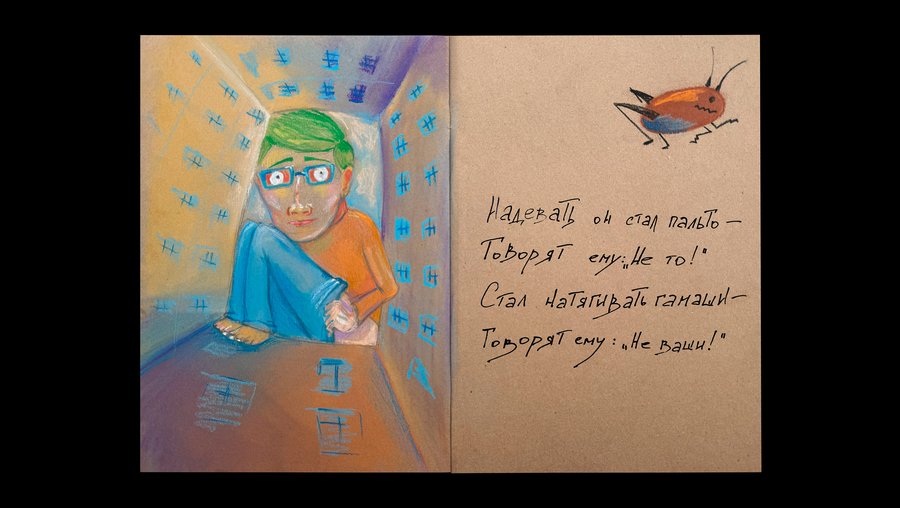 Надевать он стал пальто –
Говорят ему: „Не то!"
Стал натягивать гамаши –
Говорят ему: „Не ваши!"